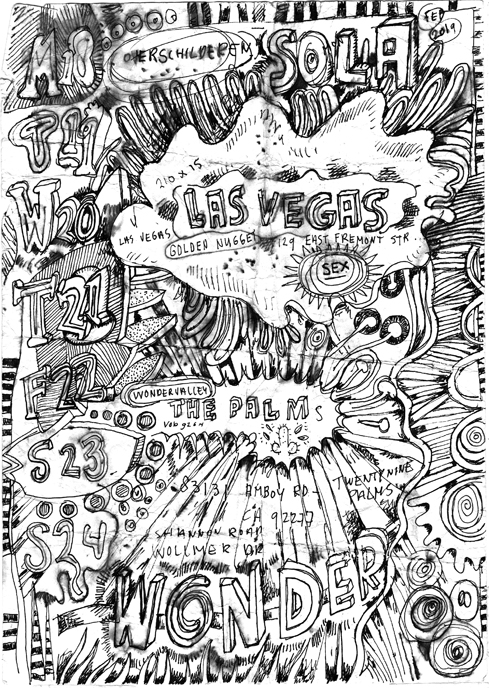 M18
OVERSCHILDEREN
SOLA
FEB
2019
T19
W20
210 x 15
LAS VEGAS
LAS VEGAS
GOLDEN NUGGET 129 EAST FREMONT STR..
SEX
T21
F22
WONDERVALLEY
THE PALMS
S23
83131 AMBOY RD-
TWENTYNINE
PALMS
CA 92277
SHANNON ROAD
S24
WONDER